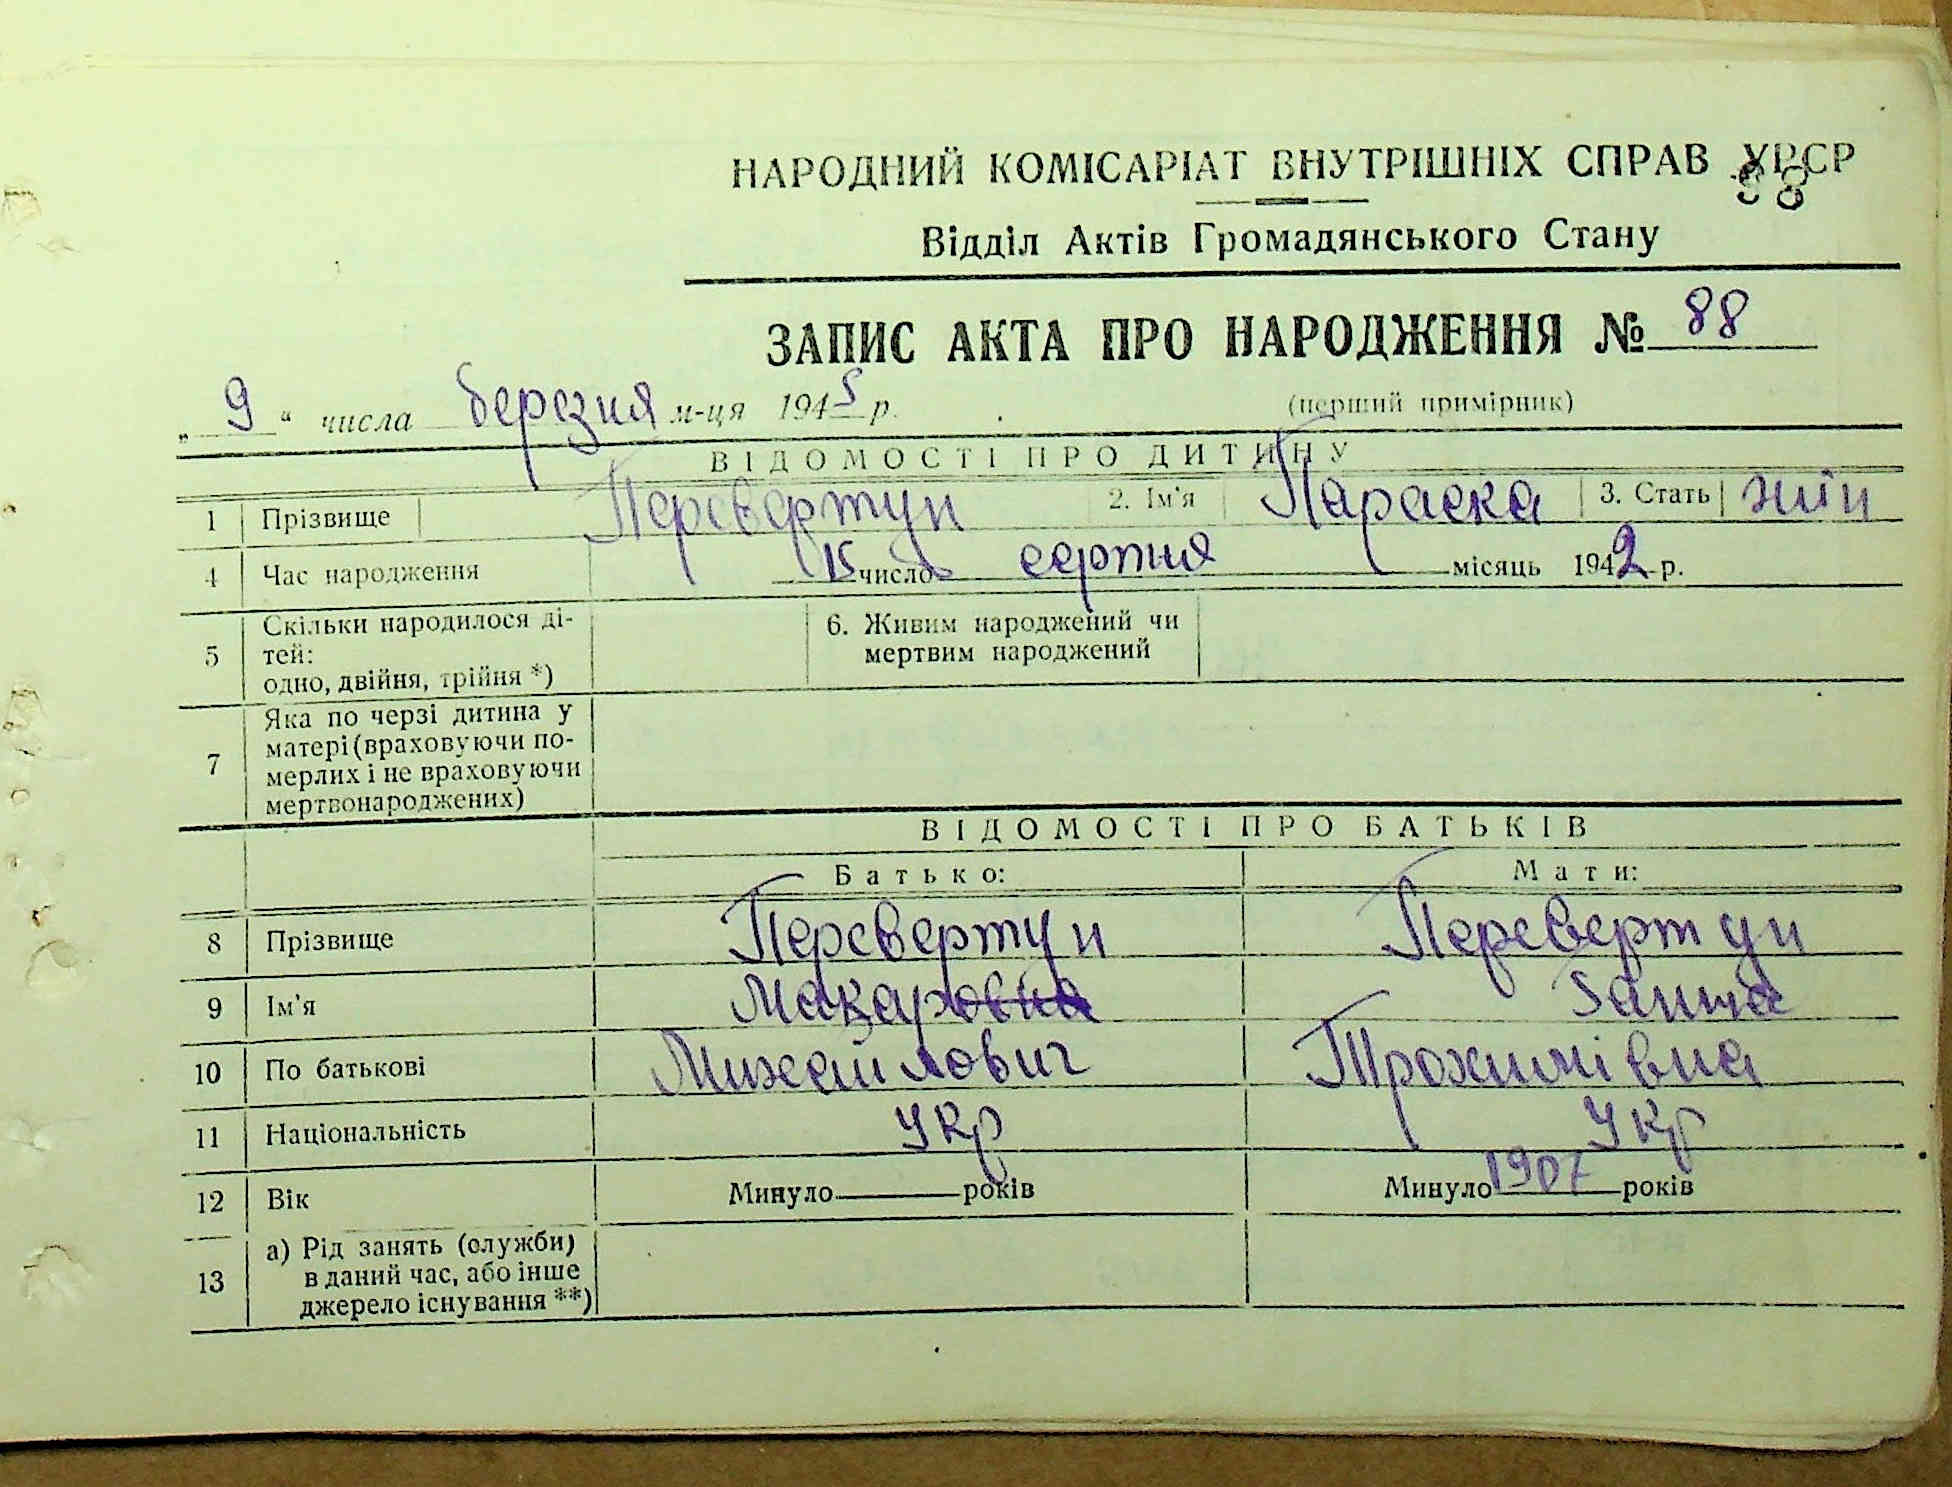 НАРОДНИЙ КОМІСАРІАТ ВНУТРІШНІХ СПРАВ УРСР
88
Відділ Актів Громадянського Стану
ЗАПИС АКТА ПРО НАРОДЖЕННЯ № 88
„ 9 “ числа березня м-ця 1945 р. (перший примірник)
ВІДОМОСТІ ПРО ДИТИНУ
1 Прізвище Перевертун 2. Ім'я Параска 3. Стать
4 Час народження 15 число серпня місяць 1942 р.
5 Скільки народилося ді-
тей:
одно, двійня, трійня *)
6. Живим народжений чи
мертвим народжений
7 Яка по черзі дитина у
матері (враховуючи по-
мерлих і не враховуючи
мертвонароджених)
ВІДОМОСТІ ПРО БАТЬКІВ
Батько: Мати:
8 Прізвище Перевертун Перевертун
9 Ім'я Макаровна
10 По батькові Михайлович Трохимівна
11 Національність Укр Укр
12 Вік Минуло років Минуло 1907 років
13 а) Рід занять (служби)
в даний час, або інше
джерело існування **)